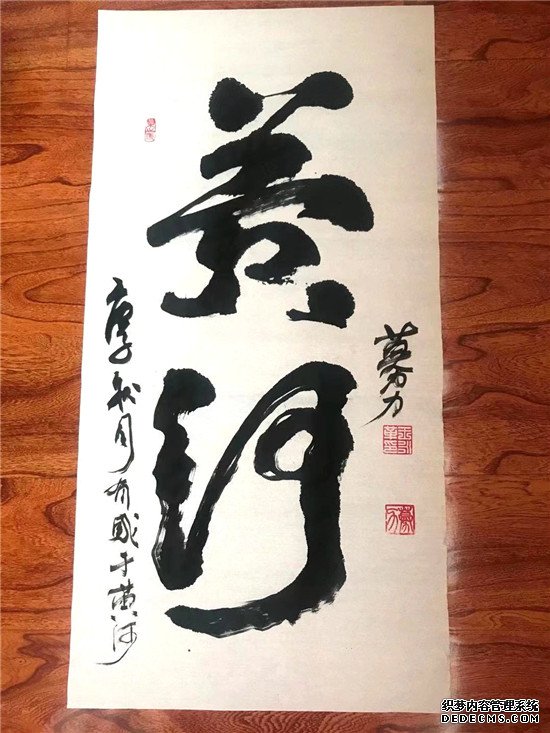 黄河
庚子秋月有感于黄河
力
织梦内容管理系统
DEDECMS.COM